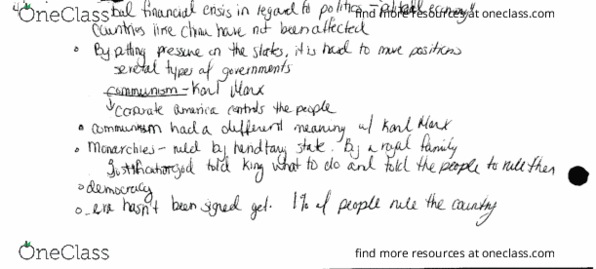 OneClass
find more resources at oneclass.com
financial crisis in regard to politics - political economy"
Countries like China have not been affected
• By putting pressure on the states, it is hard to move positions
several types of governments
communism - Karl Marx
↓ Corporate america controls the people
• communism had a different meaning w/ Karl Marx
• Monarchies - ruled by state. By a royal family
god told king what to do and told the people to rule them
• democracy
hasn't been signed yet. 1% of people rule the country
OneClass
find more resources at oneclass.com